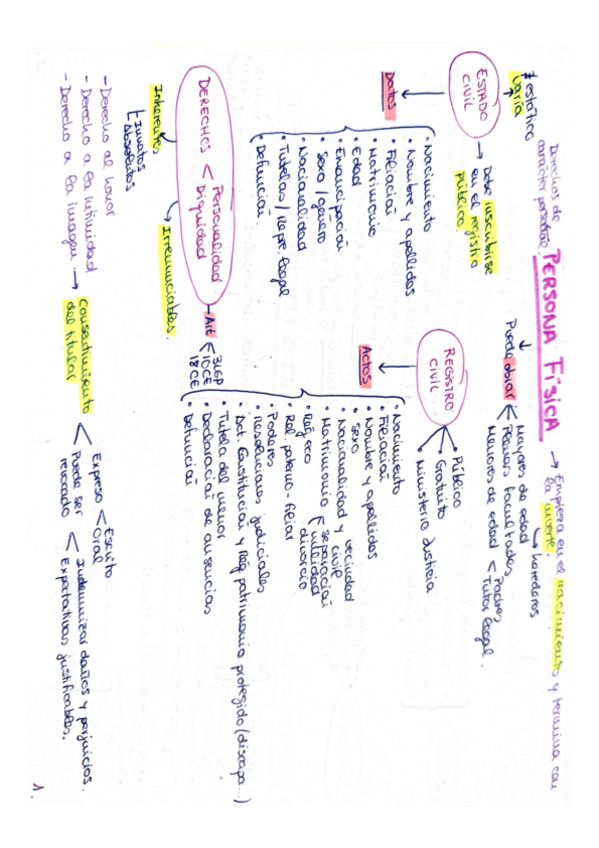 PERSONA FÍSICA → Empieza en el nacimiento y termina con
la muerte.
↳ herederos
Derechos de
carácter personal
Puede obrar
Mayores de edad
Menores de edad < Padres
Tutor legal.
ESTADO
CIVIL
≠ estático
Varía
→ Debe inscribirse
en el registro
público.
Datos
• Nacimiento
• Nombre y apellidos
• Filiación
• Matrimonio
• Edad
• Emancipación
• Sexo / género
• Nacionalidad
• Tutelas / Repre. legal
• Defunción.
REGISTRO
CIVIL
Público
Gratuito
Ministerio Justicia
Actos
• Nacimiento
• Filiación
• Nombre y apellidos
• Sexo
• Nacionalidad y vecindad
civil
• Matrimonio separación
nulidad
divorcio
• Rég. eco
• Rel. paterno-filiar
• Poderes
• Resoluciones judiciales
• Act. Constitución y Rég. patrimonio protegido (discapa...)
• Tutela del menor
• Declaración de ausencias
• Defunción
DERECHOS < Personalidad
Dignidad
Art
10CE
18CE
Inherentes
↳ Innatos
Absolutos
Irrenunciables.
- Derecho al honor
- Derecho a la intimidad
- Derecho a la imagen → Consentimiento
del titular
Expreso < Escrito
Oral
Puede ser
revocado < Indemnizar daños y perjuicios.
Expectativas justificables.
1.